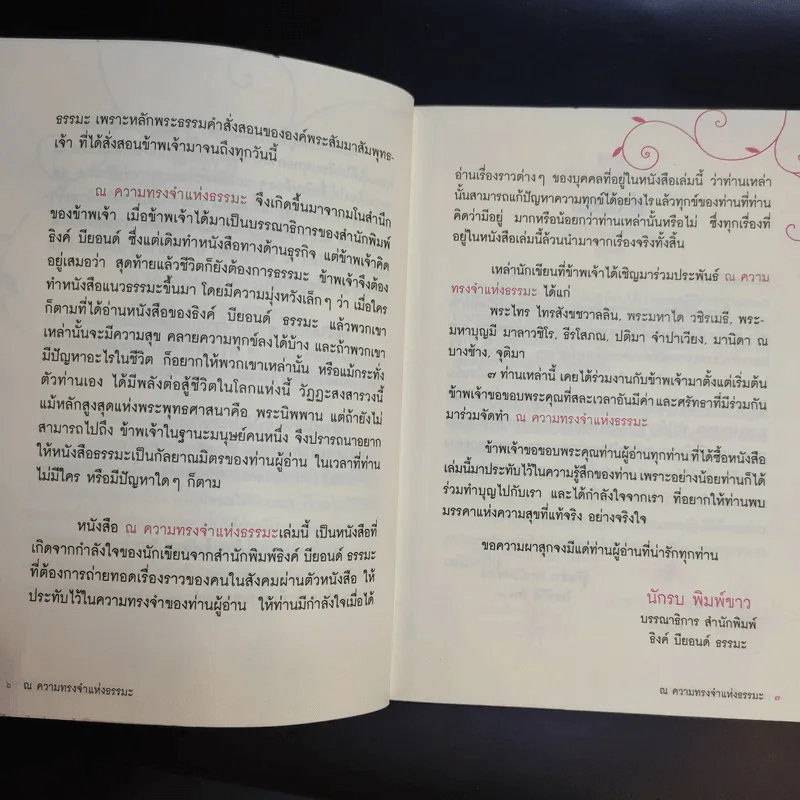 ธรรมะ เพราะหลักพระธรรมคำสั่งสอนขององค์พระสัมมาสัมพุทธ-
เจ้า ที่ได้สั่งสอนข้าพเจ้ามาจนถึงทุกวันนี้
ณ ความทรงจำแห่งธรรมะ จึงเกิดขึ้นมาจากมโนสำนึก
ของข้าพเจ้า เมื่อข้าพเจ้าได้มาเป็นบรรณาธิการของสำนักพิมพ์
ธิงค์ บียอนด์ ซึ่งแต่เดิมทำหนังสือทางด้านธุรกิจ แต่ข้าพเจ้าคิด
อยู่เสมอว่า สุดท้ายแล้วชีวิตก็ยังต้องการธรรมะ ข้าพเจ้าจึงต้อง
ทำหนังสือแนวธรรมะขึ้นมา โดยมีความมุ่งหวังเล็กๆ ว่า เมื่อใคร
ก็ตามที่ได้อ่านหนังสือของธิงค์ บียอนด์ ธรรมะ แล้วพวกเขา
เหล่านั้นจะมีความสุข คลายความทุกข์ลงได้บ้าง และถ้าพวกเขา
มีปัญหาอะไรในชีวิต ก็อยากให้พวกเขาเหล่านั้น หรือแม้กระทั่ง
ตัวท่านเอง ได้มีพลังต่อสู้ชีวิตในโลกแห่งนี้ วัฏฏะสงสารวงนี้
แม้หลักสูงสุดแห่งพระพุทธศาสนาคือ พระนิพพาน แต่ถ้ายังไม่
สามารถไปถึง ข้าพเจ้าในฐานะมนุษย์คนหนึ่ง จึงปรารถนาอยาก
ให้หนังสือธรรมะเป็นกัลยาณมิตรของท่านผู้อ่าน ในเวลาที่ท่าน
ไม่มีใคร หรือมีปัญหาใดๆ ก็ตาม
หนังสือ ณ ความทรงจำแห่งธรรมะเล่มนี้ เป็นหนังสือที่
เกิดจากกำลังใจของนักเขียนจากสำนักพิมพ์ธิงค์ บียอนด์ ธรรมะ
ที่ต้องการถ่ายทอดเรื่องราวของคนในสังคมผ่านตัวหนังสือ ให้
ประทับไว้ในความทรงจำของท่านผู้อ่าน ให้ท่านมีกำลังใจเมื่อได้
๖ ณ ความทรงจำแห่งธรรมะ
อ่านเรื่องราวต่างๆ ของบุคคลที่อยู่ในหนังสือเล่มนี้ ว่าท่านเหล่า
นั้นสามารถแก้ปัญหาความทุกข์ได้อย่างไรแล้วทุกข์ของท่านที่ท่าน
คิดว่ามีอยู่ มากหรือน้อยกว่าท่านเหล่านั้นหรือไม่ ซึ่งทุกเรื่องที่
อยู่ในหนังสือเล่มนี้ล้วนนำมาจากเรื่องจริงทั้งสิ้น
เหล่านักเขียนที่ข้าพเจ้าได้เชิญมาร่วมประพันธ์ ณ ความ
ทรงจำแห่งธรรมะ ได้แก่
พระไทร ไทรสังขชวาลลิน, พระมหาใด วชิรเมธี, พระ-
มหาบุญมี มาลาวชิโร, ธีรโสภณ, ปดิมา จำปาเวียง, มานิดา ณ
บางช้าง, จุติมา
๗ ท่านเหล่านี้ เคยได้ร่วมงานกับข้าพเจ้ามาตั้งแต่เริ่มต้น
ข้าพเจ้าขอขอบพระคุณที่สละเวลาอันมีค่า และศรัทธาที่มีร่วมกัน
มาร่วมจัดทำ ณ ความทรงจำแห่งธรรมะ
ข้าพเจ้าขอขอบพระคุณท่านผู้อ่านทุกท่าน ที่ได้ซื้อหนังสือ
เล่มนี้มาประทับไว้ในความรู้สึกของท่าน เพราะอย่างน้อยท่านก็ได้
ร่วมทำบุญไปกับเรา และได้กำลังใจจากเรา ที่อยากให้ท่านพบ
มรรคาแห่งความสุขที่แท้จริง อย่างจริงใจ
ขอความผาสุกจงมีแด่ท่านผู้อ่านที่น่ารักทุกท่าน
นักรบ พิมพ์ขาว
บรรณาธิการ สำนักพิมพ์
ธิงค์ บียอนด์ ธรรมะ
ณ ความทรงจำแห่งธรรมะ ๗